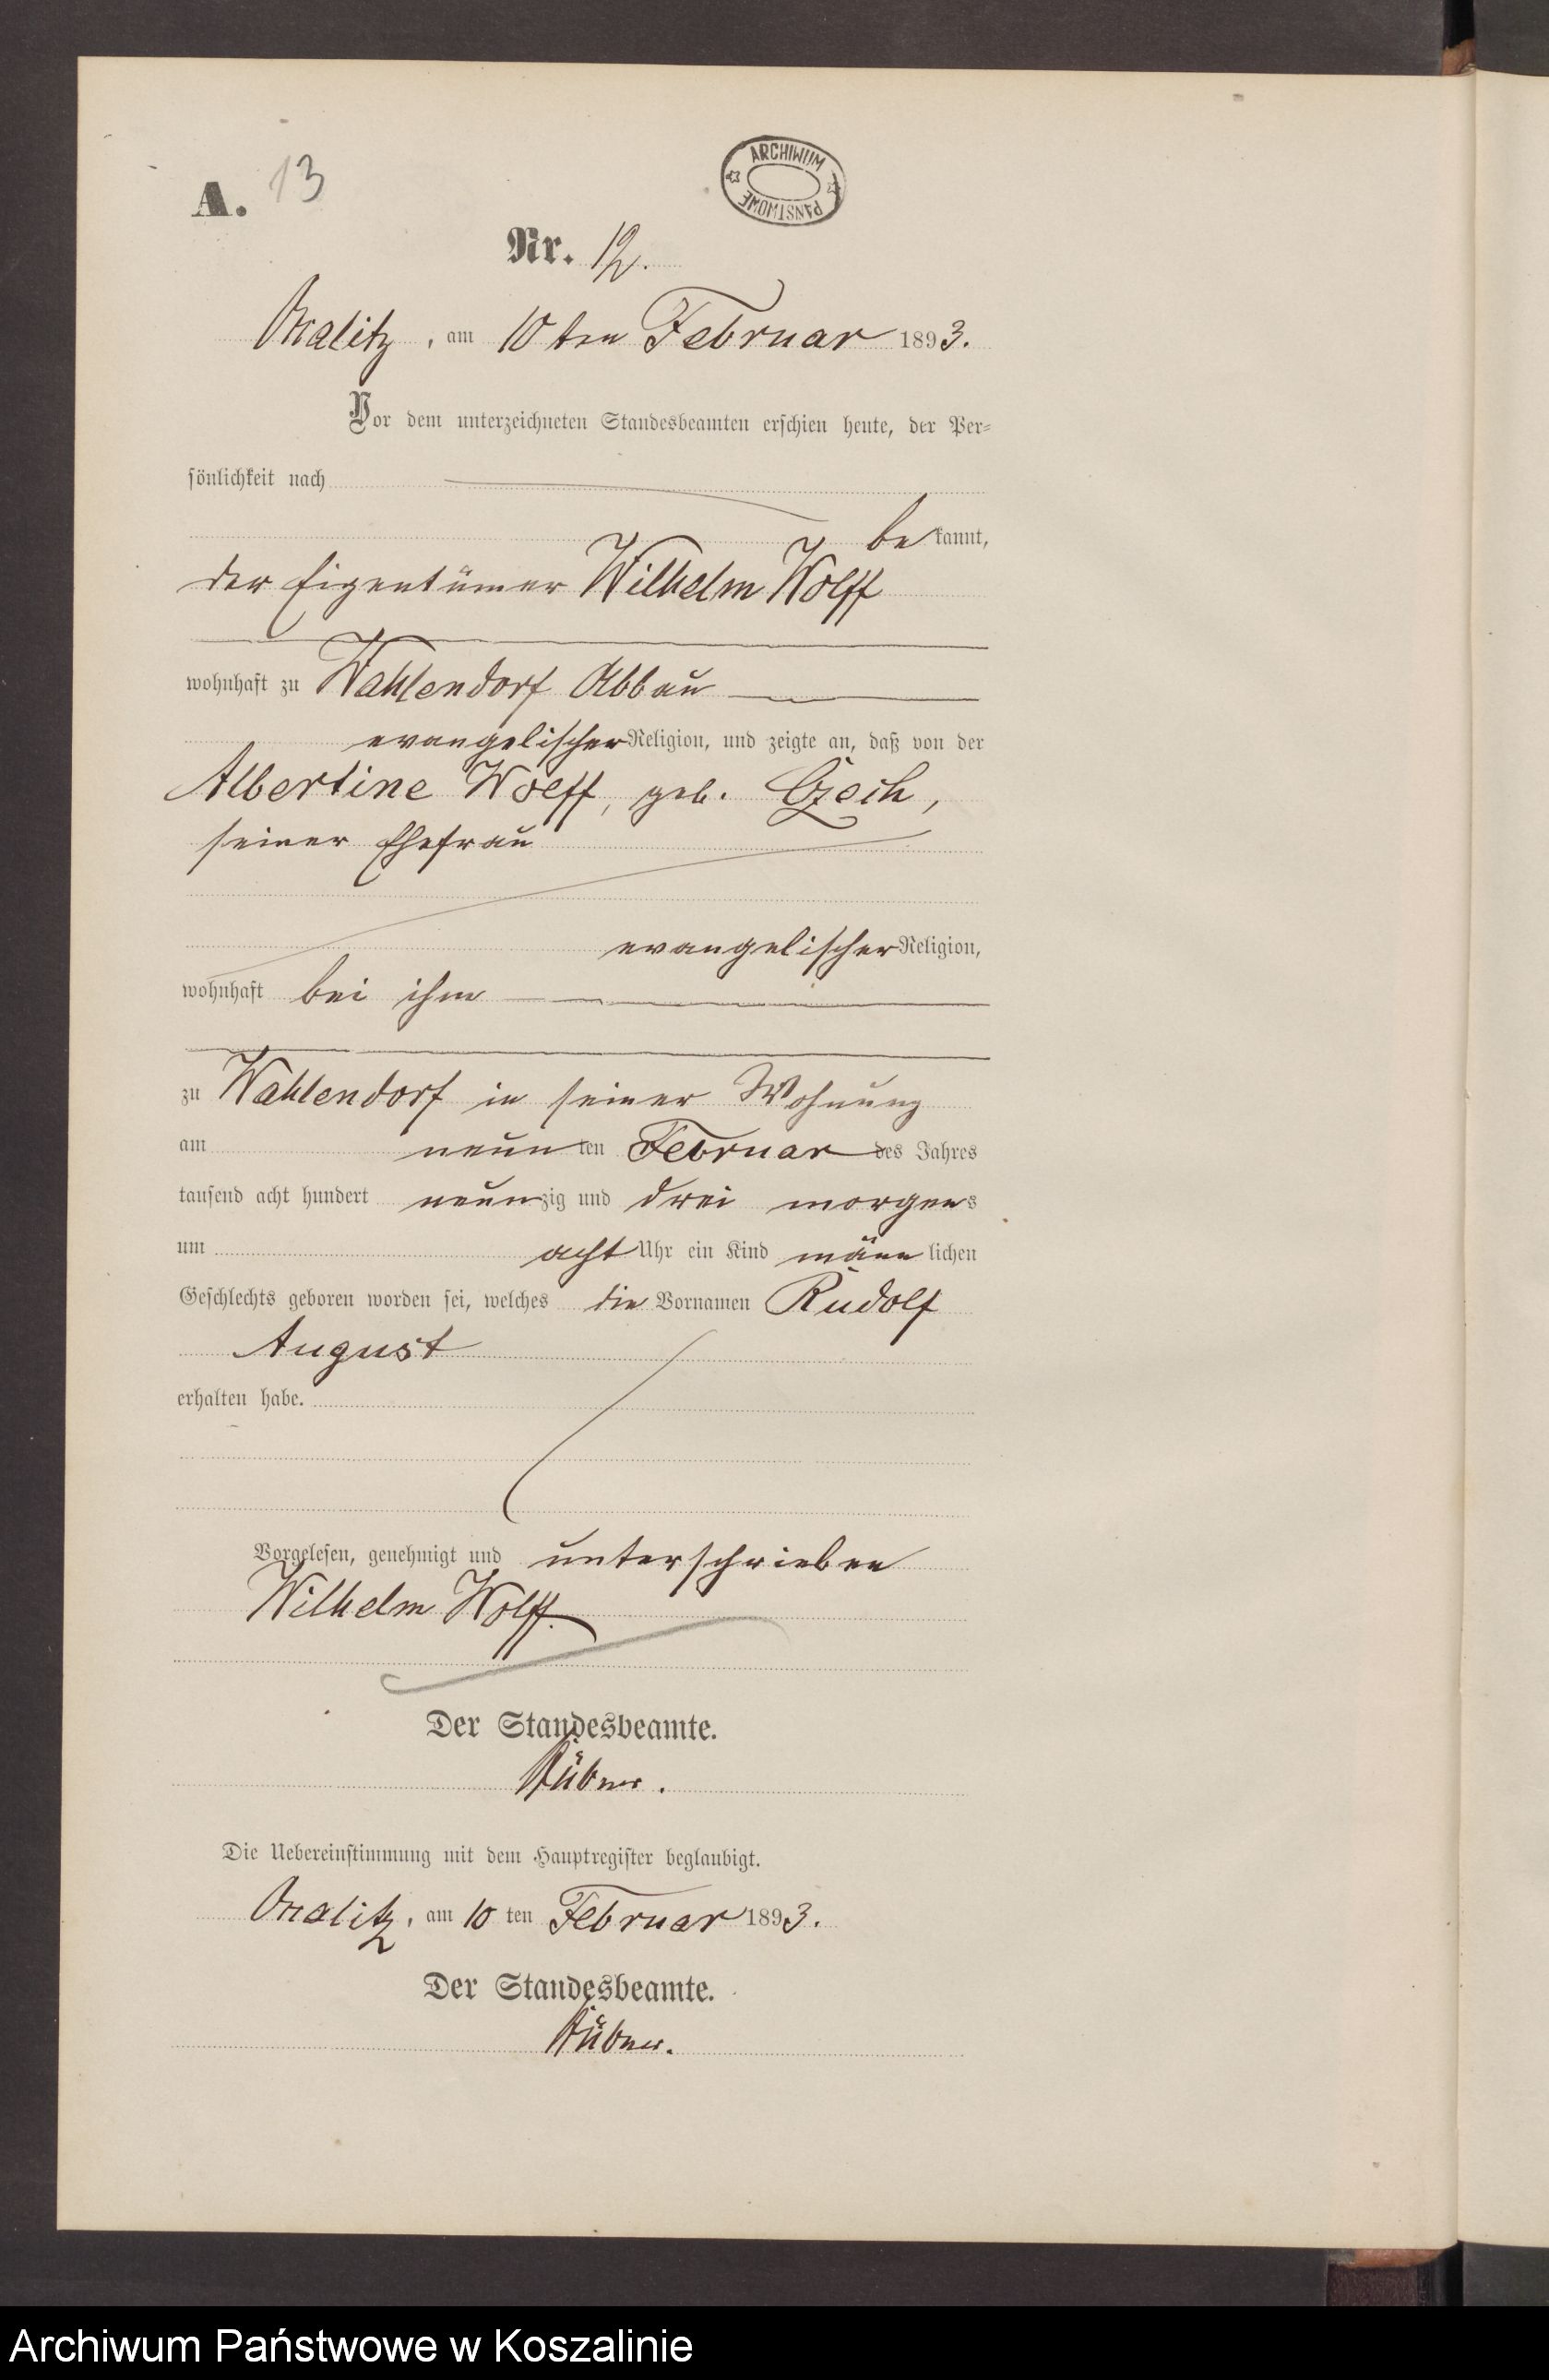 A. 13
ARCHIWUM PAŃSTWOWE
Nr. 12.
Oxalitz, am 10ten Februar 1893.
Vor dem unterzeichneten Standesbeamten erschien heute, der Per-
sönlichkeit nach
bekannt,
der Eigentümer Wilhelm Wolff
wohnhaft zu Wahlendorf Abbau
evangelischer Religion, und zeigte an, daß von der
Albertine Wolff, geb. Czech,
seiner Ehefrau
evangelischer Religion,
wohnhaft bei ihm
zu Wahlendorf in seiner Wohnung
am neunten Februar des Jahres
tausend acht hundert neunzig und drei morgens
um acht Uhr ein Kind männlichen
Geschlechts geboren worden sei, welches die Vornamen Rudolf
August
erhalten habe.
Vorgelesen, genehmigt und unterschrieben
Wilhelm Wolff.
Der Standesbeamte.
Die Uebereinstimmung mit dem Hauptregister beglaubigt.
Oxalitz, am 10ten Februar 1893.
Der Standesbeamte.
Archiwum Państwowe w Koszalinie